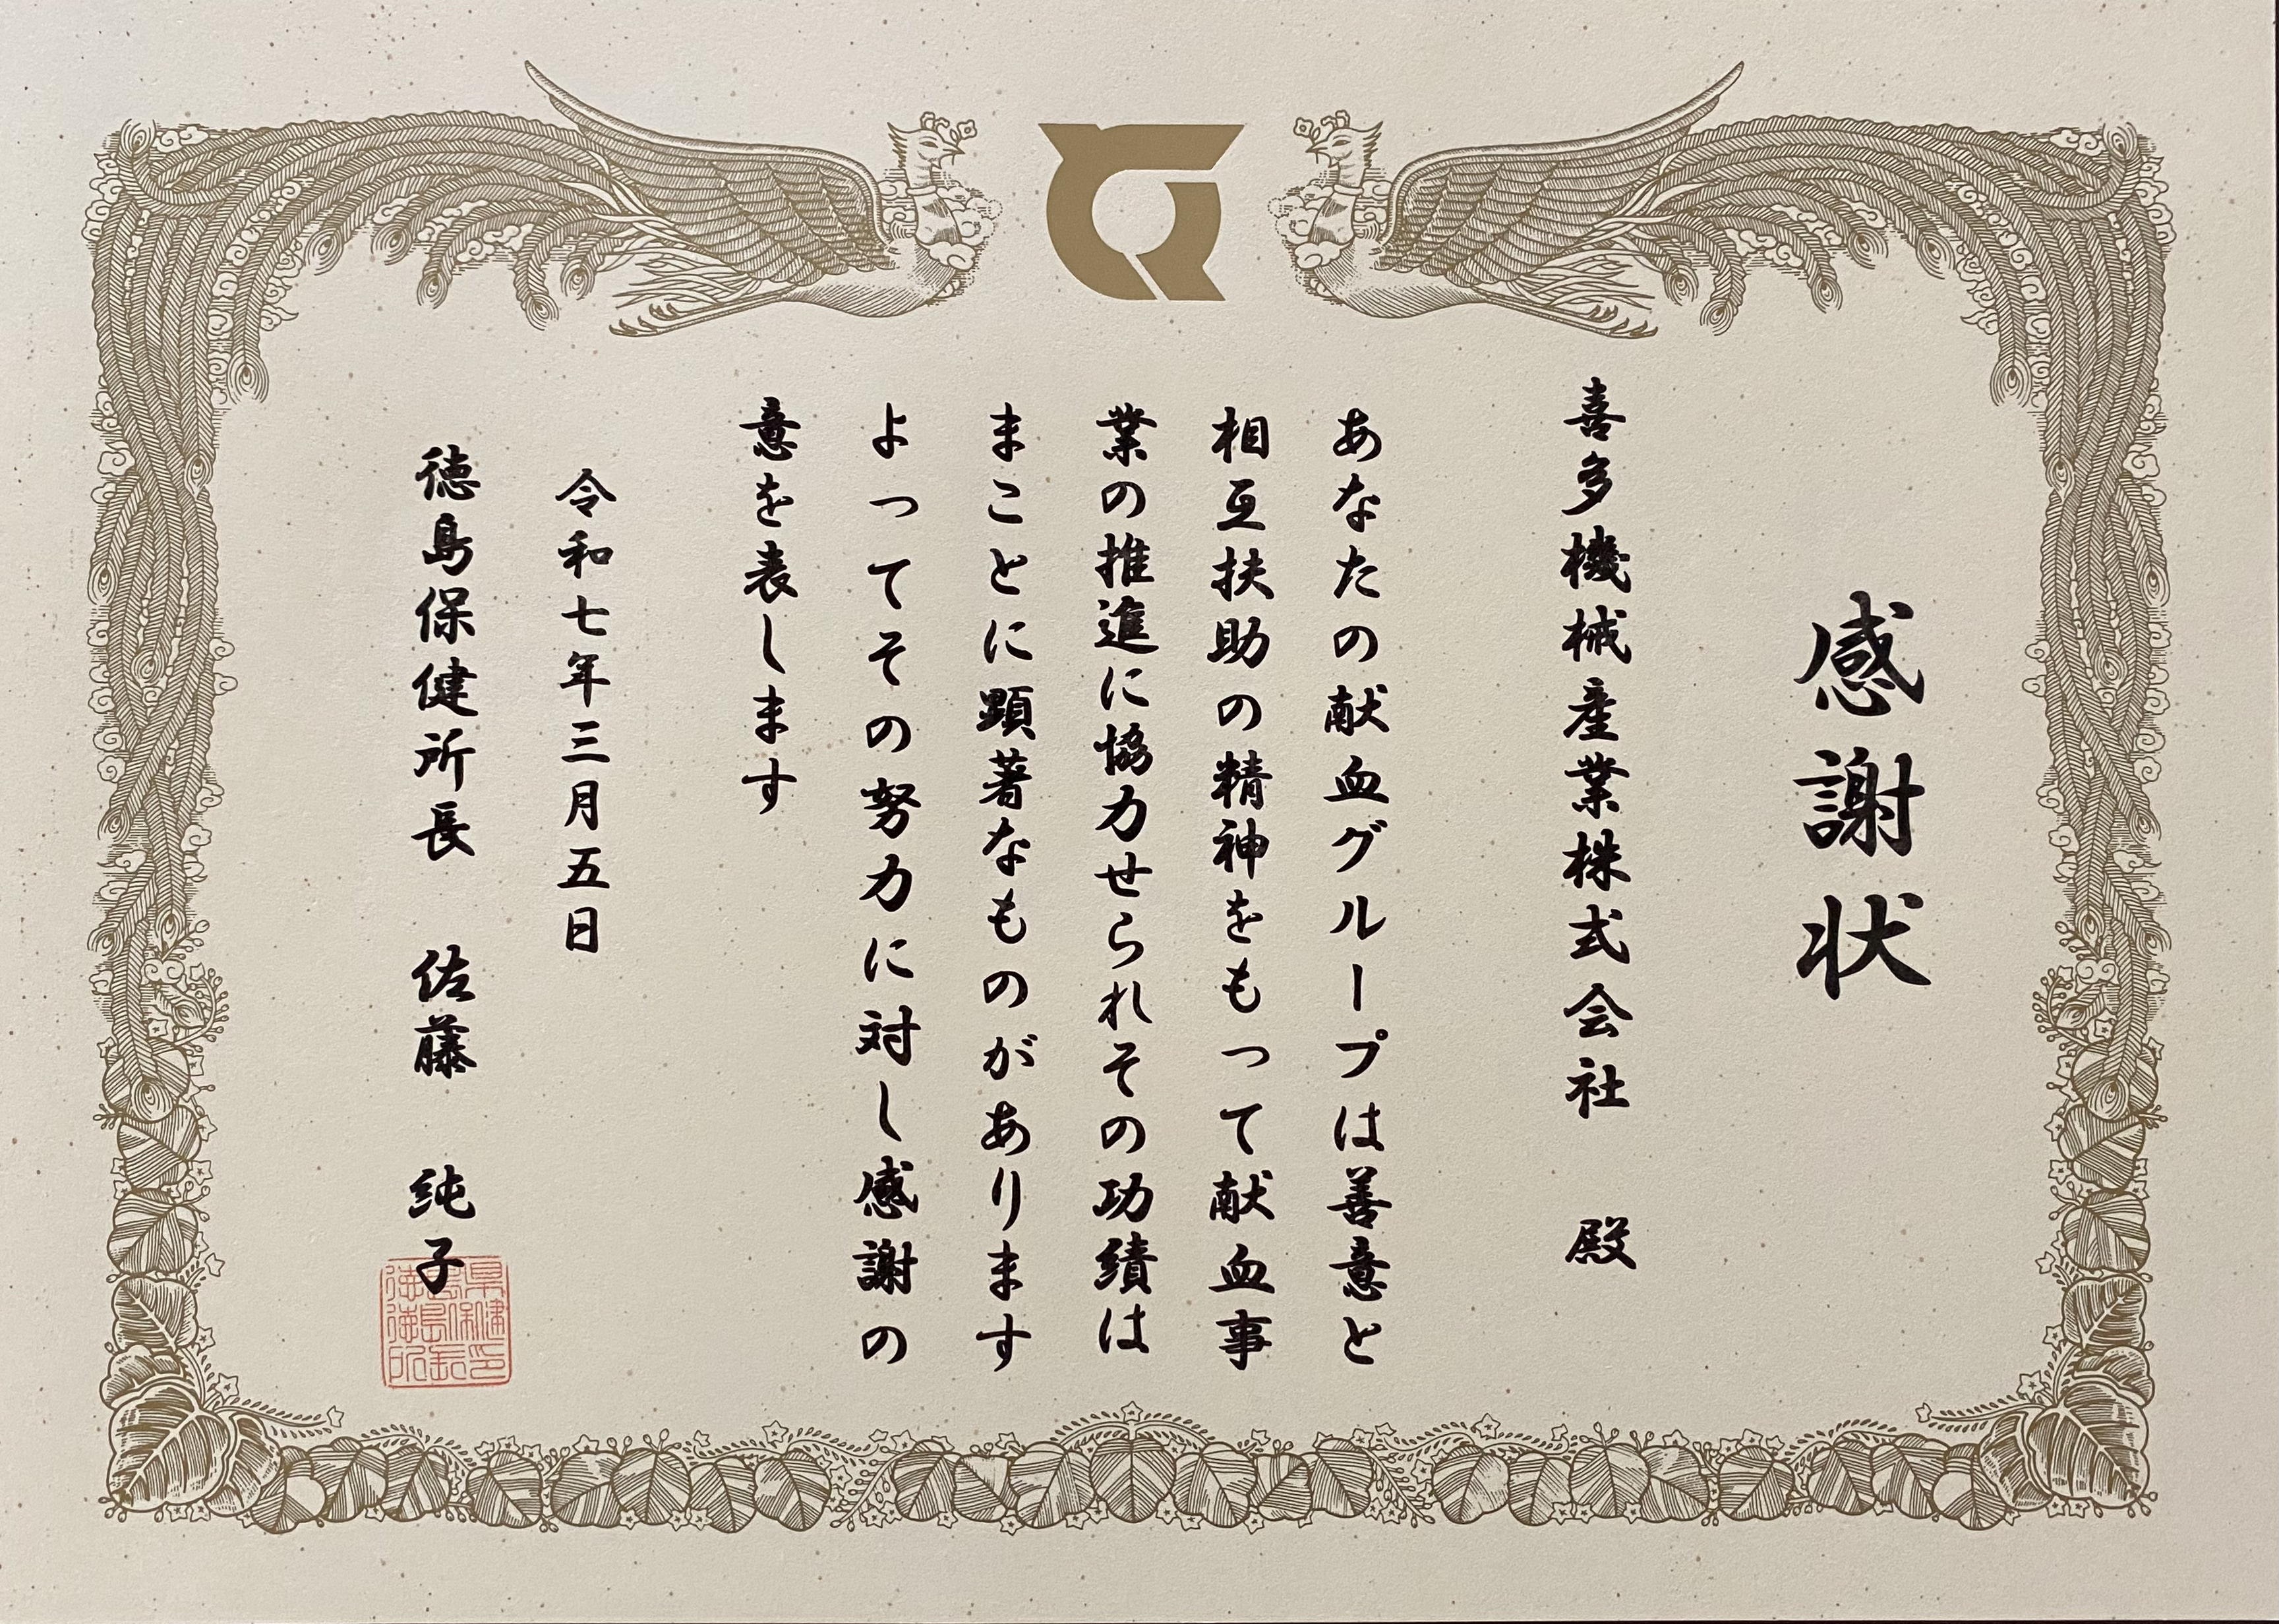 感謝状
喜多機械産業株式会社 殿
あなたの献血グループは善意と
相互扶助の精神をもって献血事
業の推進に協力せられその功績は
まことに顕著なものがあります
よってその努力に対し感謝の
意を表します
令和七年三月五日
徳島保健所長 佐藤 純子